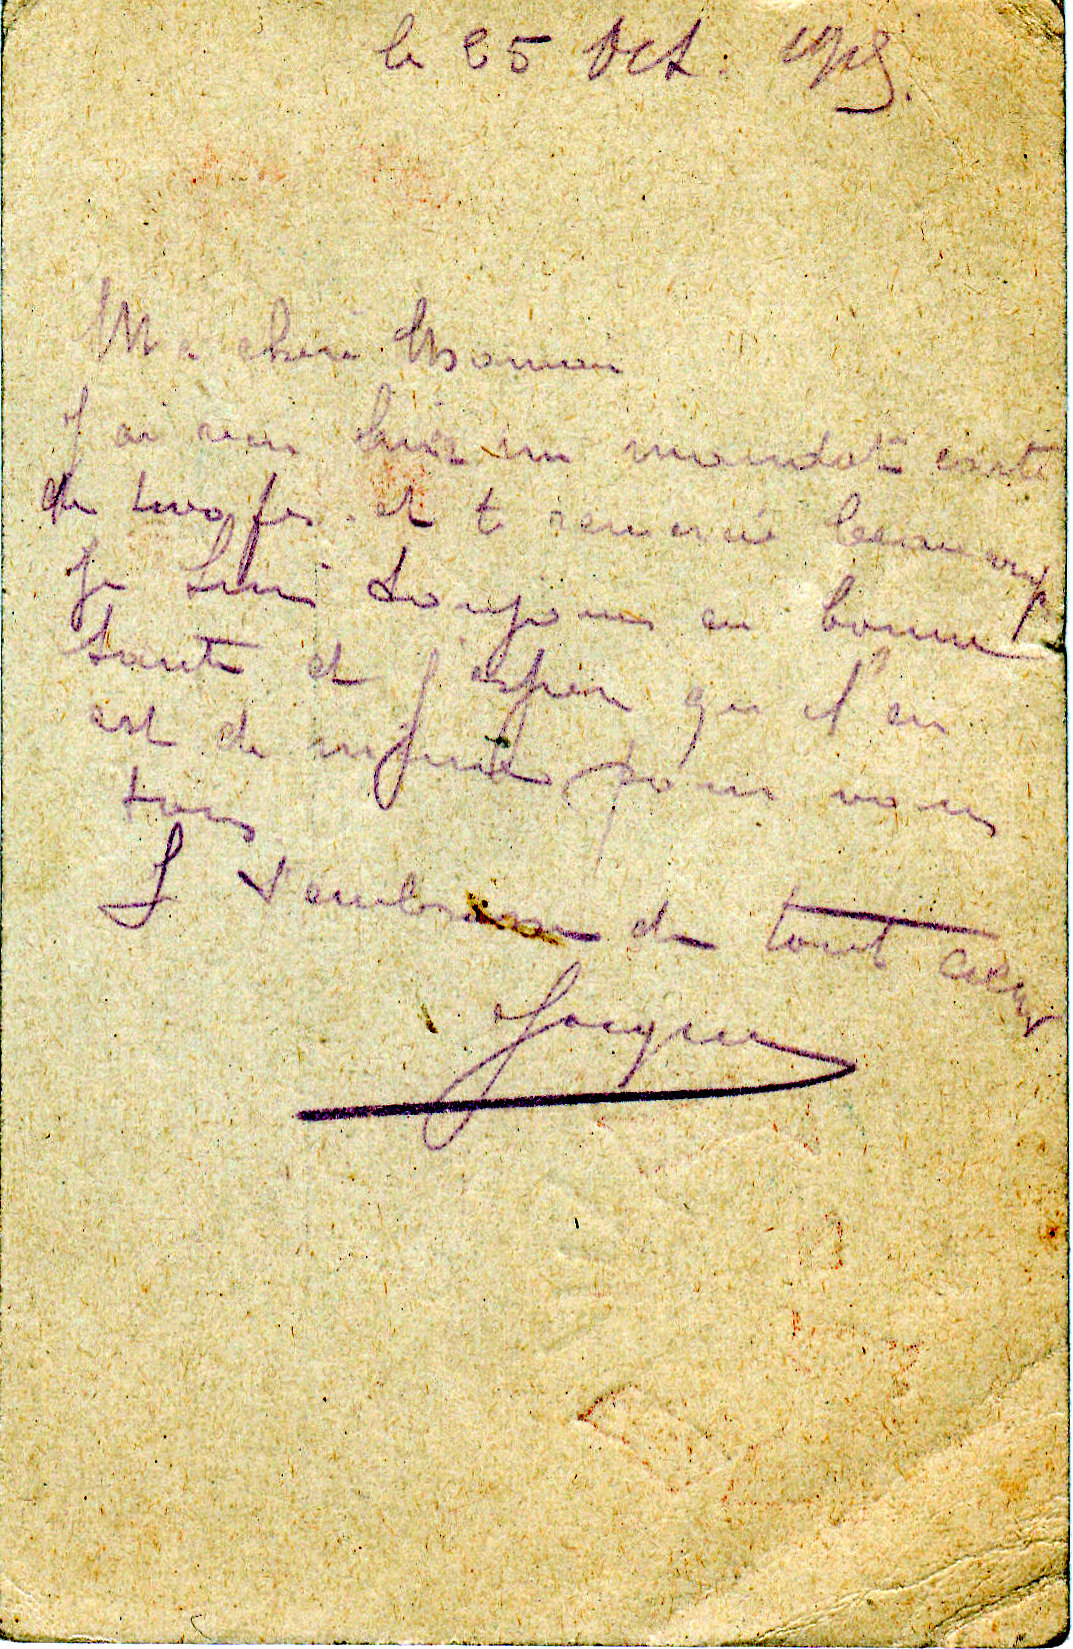 le 25 Oct. 1915.
Ma chère Maman
J'ai reçu hier un mandat carte
de frs. et te remercie beaucoup
Je suis toujours en bonne
santé et j'espère qu'il en
est de même pour vous
tous.
Je t'embrasse de tout cœur
Jacques